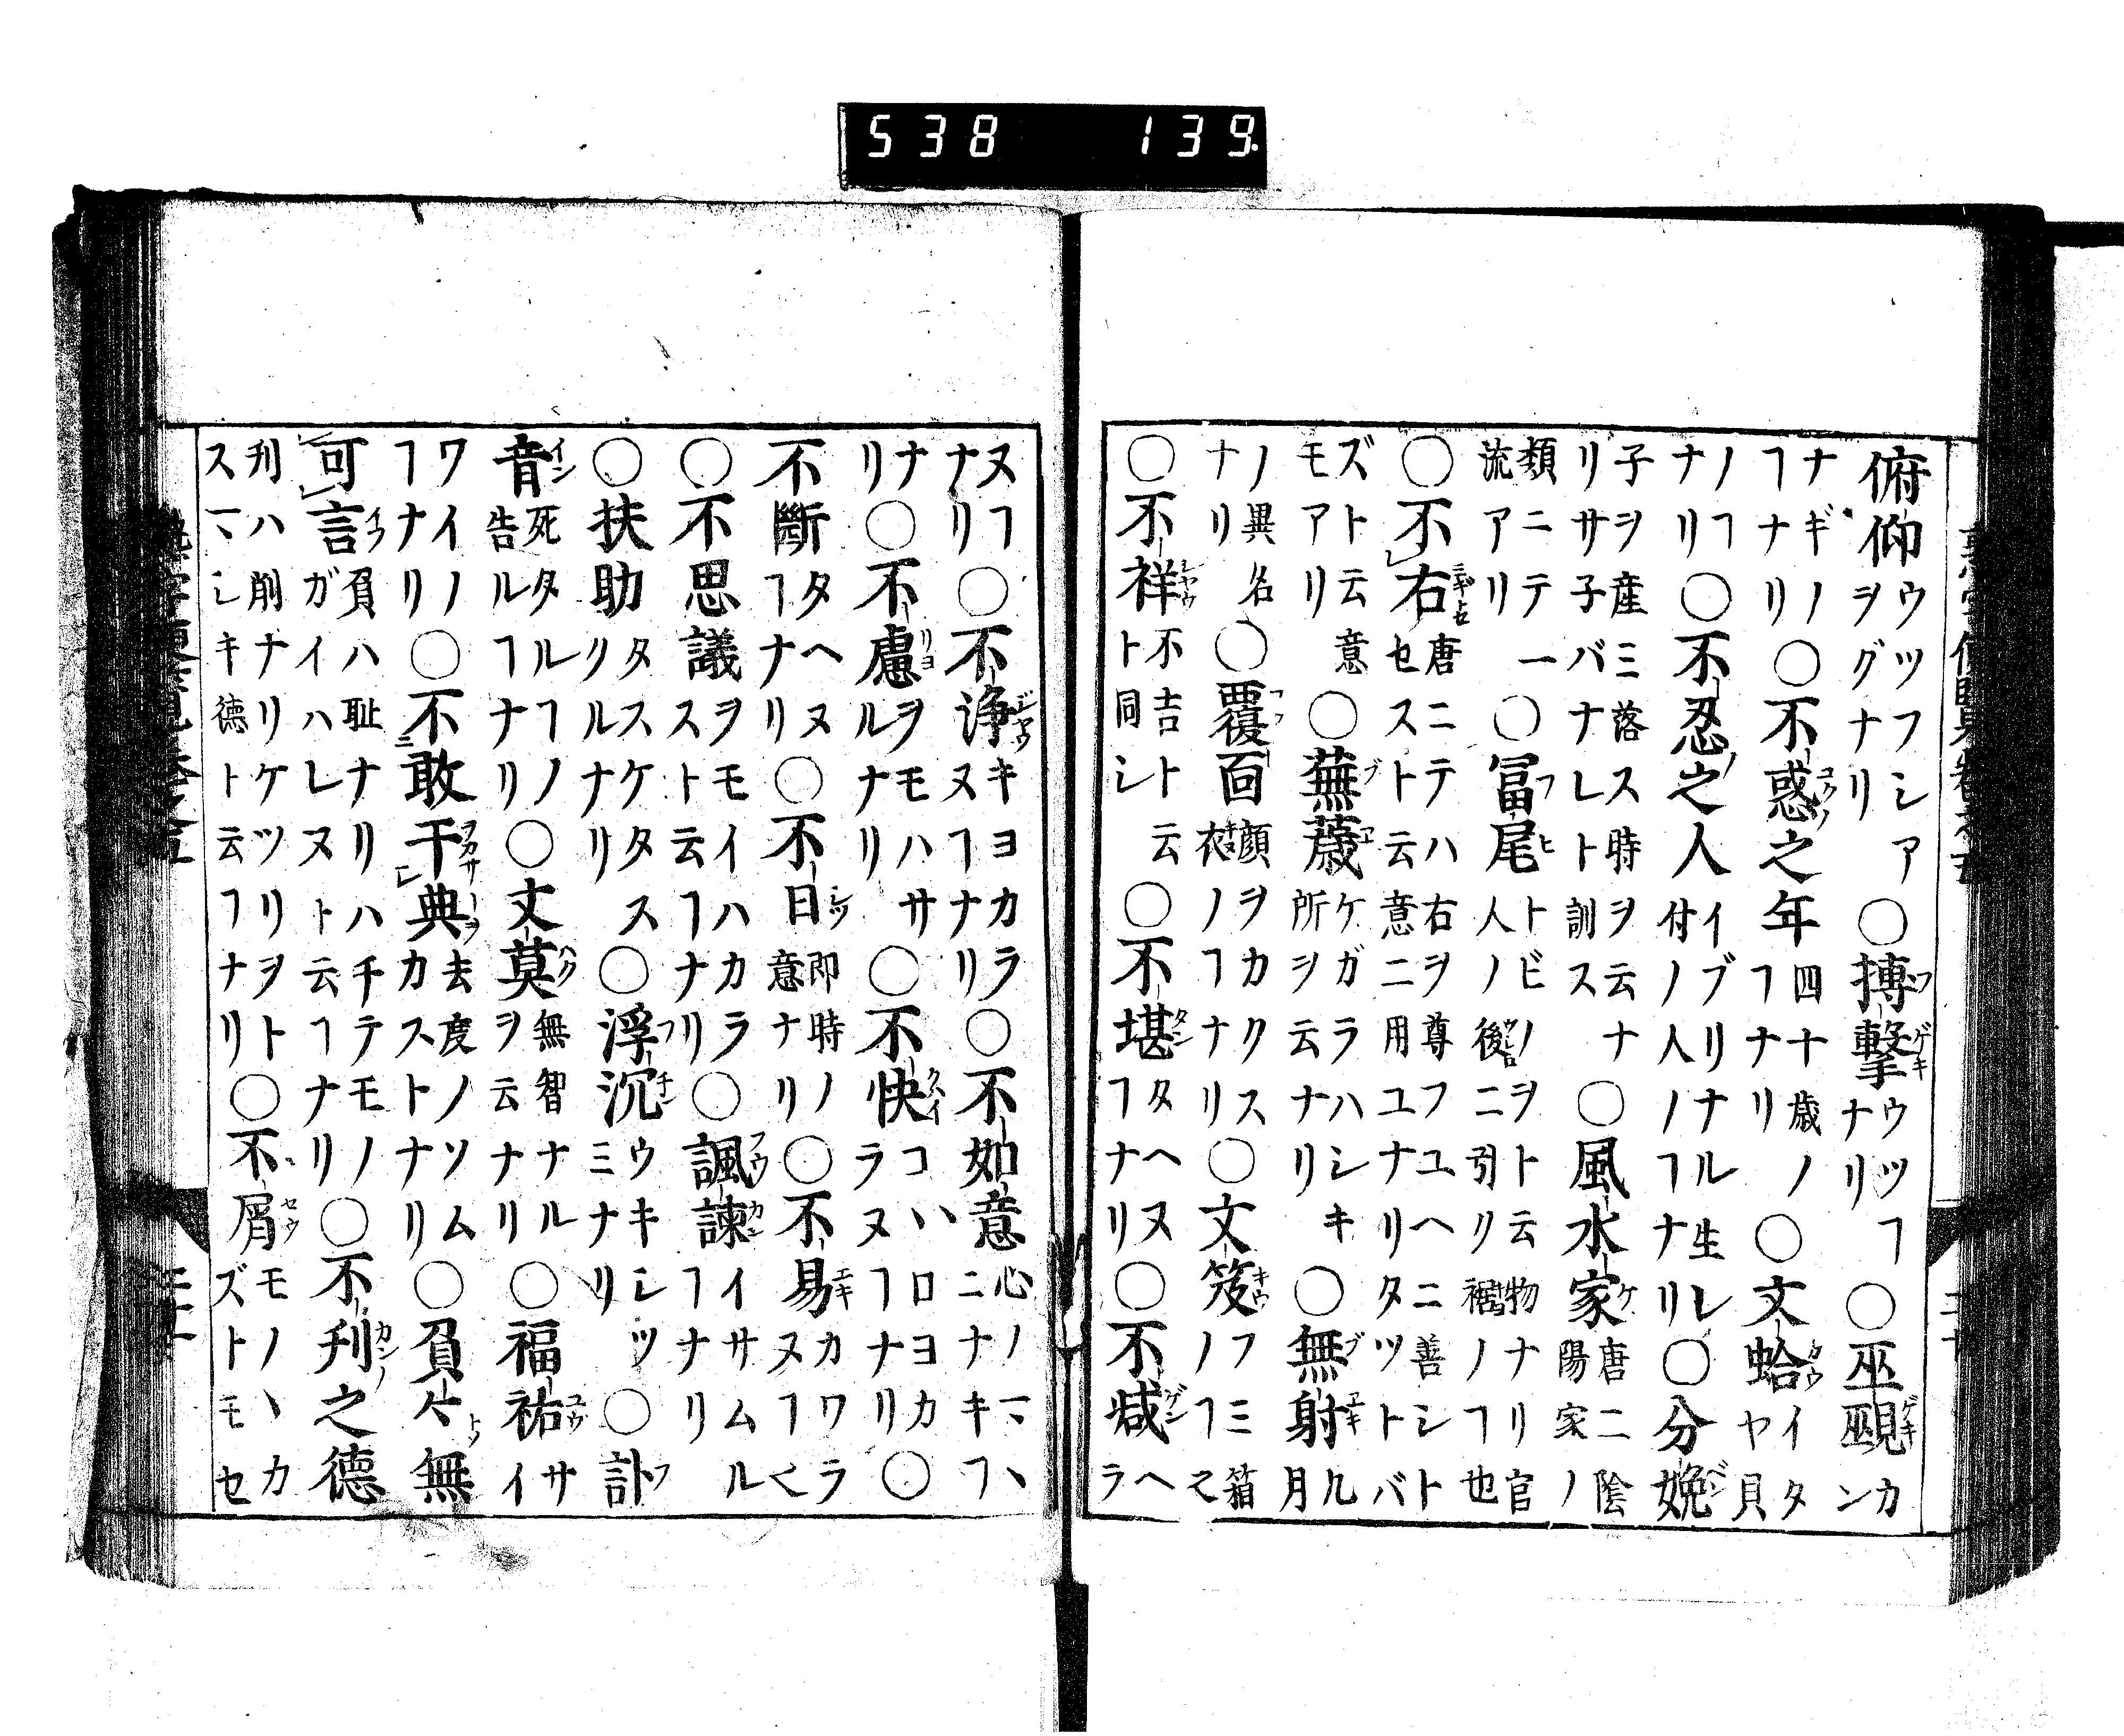 538 139
俯仰ウツフシアヲグナリ○搏撃ウツヿナリ○巫覡カン
ナギノヿナリ○不惑之年四十歳ノヿナリ○文蛤イタヤ貝
ノヿナリ○不忍之人イブリナル生レ付ノ人ノヿナリ○分娩
子ヲ産ミ落ス時ヲ云ナリサ子バナレト訓ス○風水家唐ニ陰陽家ノ
類ニテ一流アリ○冨尾トビノヲト云物ナリ官人ノ後ニ引リ裾ノヿ也
○不右唐ニテハ右ヲ尊フユヘニ善シトセスト云意ニ用ユナリタツトバ
ズト云意モアリ○蕪薉ケガラハシキ所ヲ云ナリ○無射九月
ノ異名ナリ○覆面顔ヲカクス衣ノヿナリ○文笈フミ箱ノヿ
○不祥不吉ト云ト同シ○不堪タヘヌヿナリ○不減ヘラ
ヌヿナリ○不浄キヨカラヌヿナリ○不如意心ノマヽニナキヿ
ナリ○不慮ヲモハサルナリ○不快コヽロヨカラヌヿナリ○
不斷タヘヌヿナリ○不日即時ノ意ナリ○不易カワラヌヿ
○不思議ヲモイハカラスト云ヿナリ○諷諌イサムルヿナリ
○扶助タスケタスリルナリ○浮沉ウキシツミナリ○訃
音死タルヿノ告ルヿナリ○丈莫無智ナルヲ云ナリ○福祐サイ
ワイノヿナリ○不敢干典去度ノソムカストナリ○負〻無
可言負ハ耻ナリハチテモノガイハレヌト云ヿナリ○不刋之德
刋ハ削ナリケツリヲトスマシキ德ト云ヿナリ○不屑モノヽカズトモセ